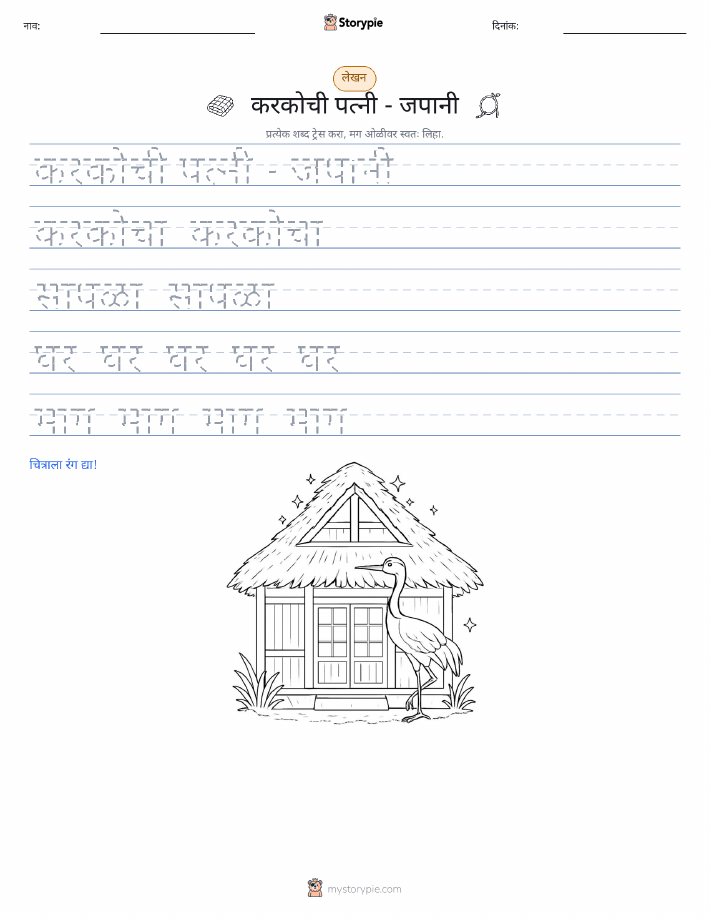 नाव:
Storypie
दिनांक:
लेखन
करकोची पत्नी - जपानी
प्रत्येक शब्द ट्रेस करा, मग ओळीवर स्वतः लिहा.
करकोची पत्नी - जपानी
करकोचा करकोचा
सापळा सापळा
घर घर घर घर घर
माग माग माग माग
चित्राला रंग द्या!
mystorypie.com